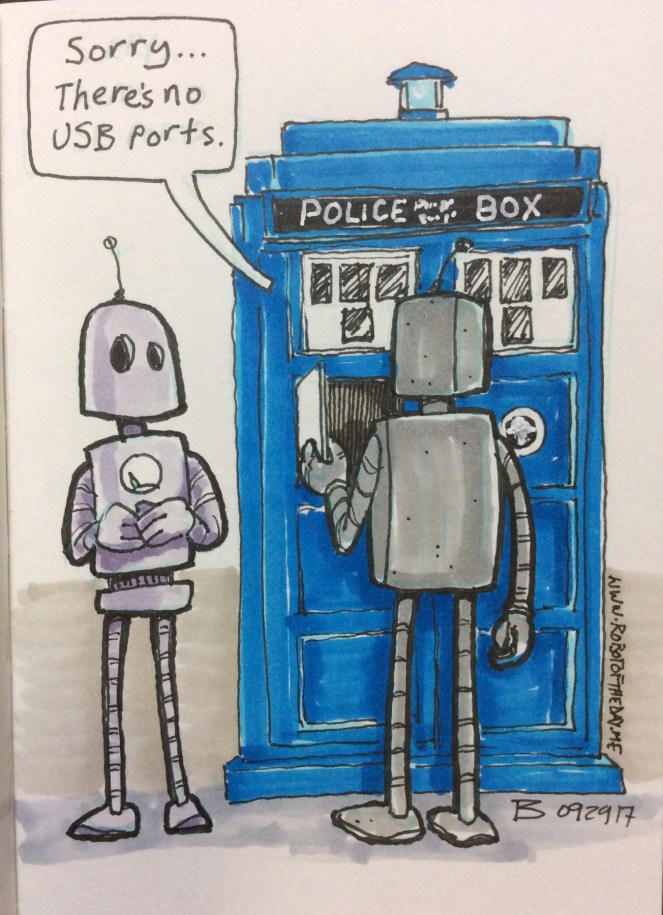 Sorry...
There's no
USB ports.
POLICE BOX
WWW.ROBOTOFTHEDAY.ME
B 092917